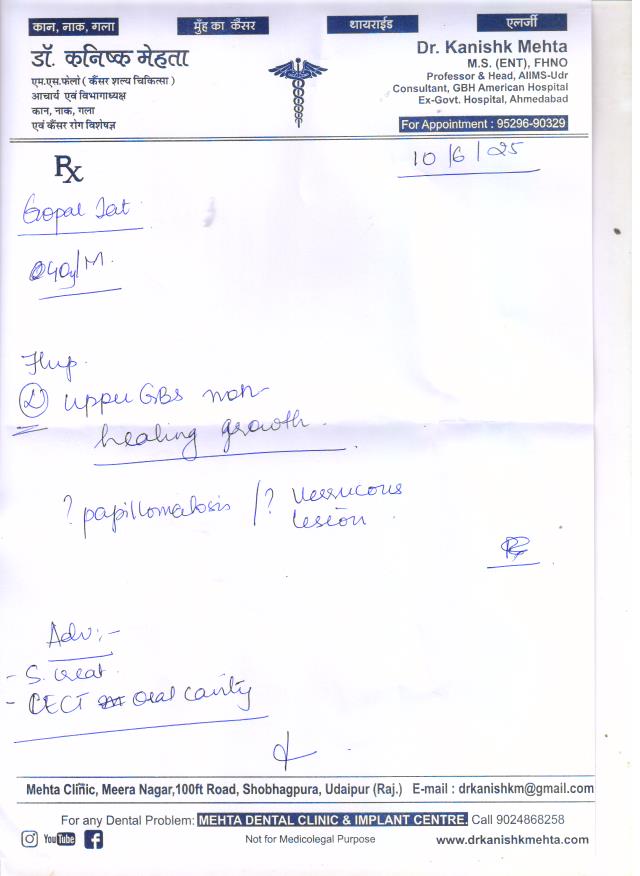 कान, नाक, गला
मुँह का कैंसर
थायराईड
एलर्जी
डॉ. कनिष्क मेहता
एम.एस.फेलो ( कैंसर शल्य चिकित्सा )
आचार्य एवं विभागाध्यक्ष
कान, नाक, गला
एवं कैंसर रोग विशेषज्ञ
Dr. Kanishk Mehta
M.S. (ENT), FHNO
Professor & Head, AIIMS-Udr
Consultant, GBH American Hospital
Ex-Govt. Hospital, Ahmedabad
For Appointment : 95296-90329
Rx
10/6/25
Gopal Jat
40y/M.
(L) upper GBS non-
healing growth.
? papillomatosis /? verrucous
lesion.
Adv:-
- S. creat.
- CECT oral cavity
Mehta Clinic, Meera Nagar,100ft Road, Shobhagpura, Udaipur (Raj.) E-mail : drkanishkm@gmail.com
For any Dental Problem: MEHTA DENTAL CLINIC & IMPLANT CENTRE. Call 9024868258
YouTube
Not for Medicolegal Purpose
www.drkanishkmehta.com